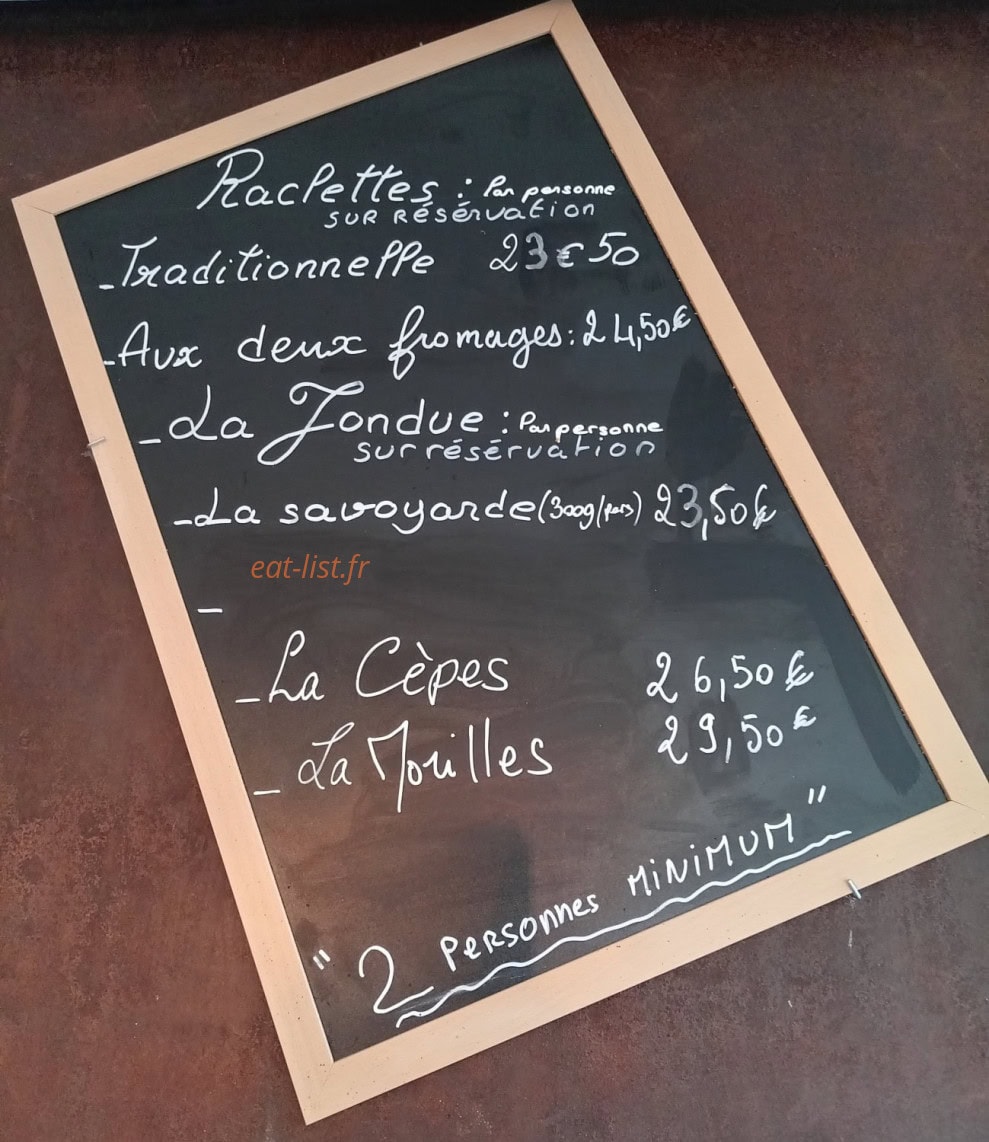 Raclettes : Par personne
SUR RéséRvation
- Traditionnelle 23€50
- Aux deux fromages : 24,50€
- La Fondue : Par personne
sur réservation
- La savoyarde (300g/pers) 23,50€
eat-list.fr
-
- La Cèpes 26,50€
- La Morilles 29,50€
" 2 PeRSOnnes MiNiMUM "